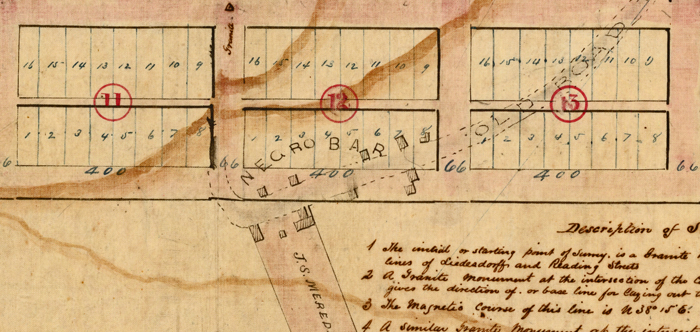 16 15 14 13 12 11 10 9
16 15 14 13 12 11 10 9
16 15 14 13 12 11 10 9
11
12
13
1 2 3 4 5 6 7 8
1 2 3 4 5 6 7 8
1 2 3 4 5 6 7 8
OLD ROAD
NEGRO BAR
6 400 66 400 66 400 66
J.S. MERED
Description of S
1 The initial or starting point of Survey. is a Granite
lines of Leidesdorff and Reading Streets
2 A Granite Monument at the intersection of the
gives the direction of. or base line for laying out
3 The Magnetic Course of this line is N 38° 15' E.
4 A Similar Granite Monument